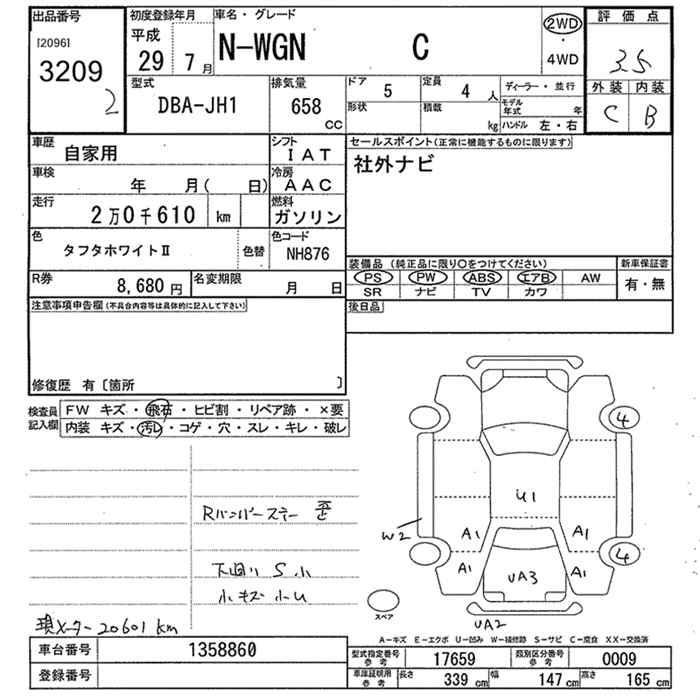 出品番号 初度登録年月 車名・グレード 評価点
[2096] 平成 N-WGN C 2WD ・ 4WD 3.5
3209 29 年 7 月
2 型式 排気量 ドア 5 定員 4 人 ディーラー・並行 外装 内装
DBA-JH1 658 cc 形状 積載 kg モデル年式 年 C B
ハンドル 左・右
車歴 自家用 シフト IAT セールスポイント(正常に機能するものに限ります)
車検 年 月( 日) 冷房 AAC 社外ナビ
走行 2万0千610 km 燃料 ガソリン
色 タフタホワイトⅡ 色替 色コード NH876
装備品 (純正品に限り○をつけてください) 新車保証書
R券 8,680 円 名変期限 月 日 PS PW ABS エアB AW 有・無
SR ナビ TV カワ
注意事項申告欄(不具合内容等は具体的に記入して下さい) 後日品
修復歴 有〔箇所 〕
検査員記入欄 FW キズ・飛石・ヒビ割・リペア跡・×要
内装 キズ・汚レ・コゲ・穴・スレ・キレ・破レ
4
U1
Rバンパーステー 歪
W2 A1 A1
4
下廻り S小 A1 UA3 A1
小キズ 小U
スペア
UA2
現メーター20601km
A-キズ E-エクボ U-凹み W-補修跡 S-サビ C-腐食 XX-交換済
車台番号 1358860 型式指定番号参考 17659 類別区分番号参考 0009
登録番号 車庫証明用参考 長さ 339 cm 幅 147 cm 高さ 165 cm